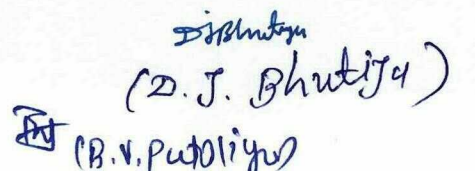 DJBhutiya
(D. J. Bhutiya)
(B. V. Putoliya)